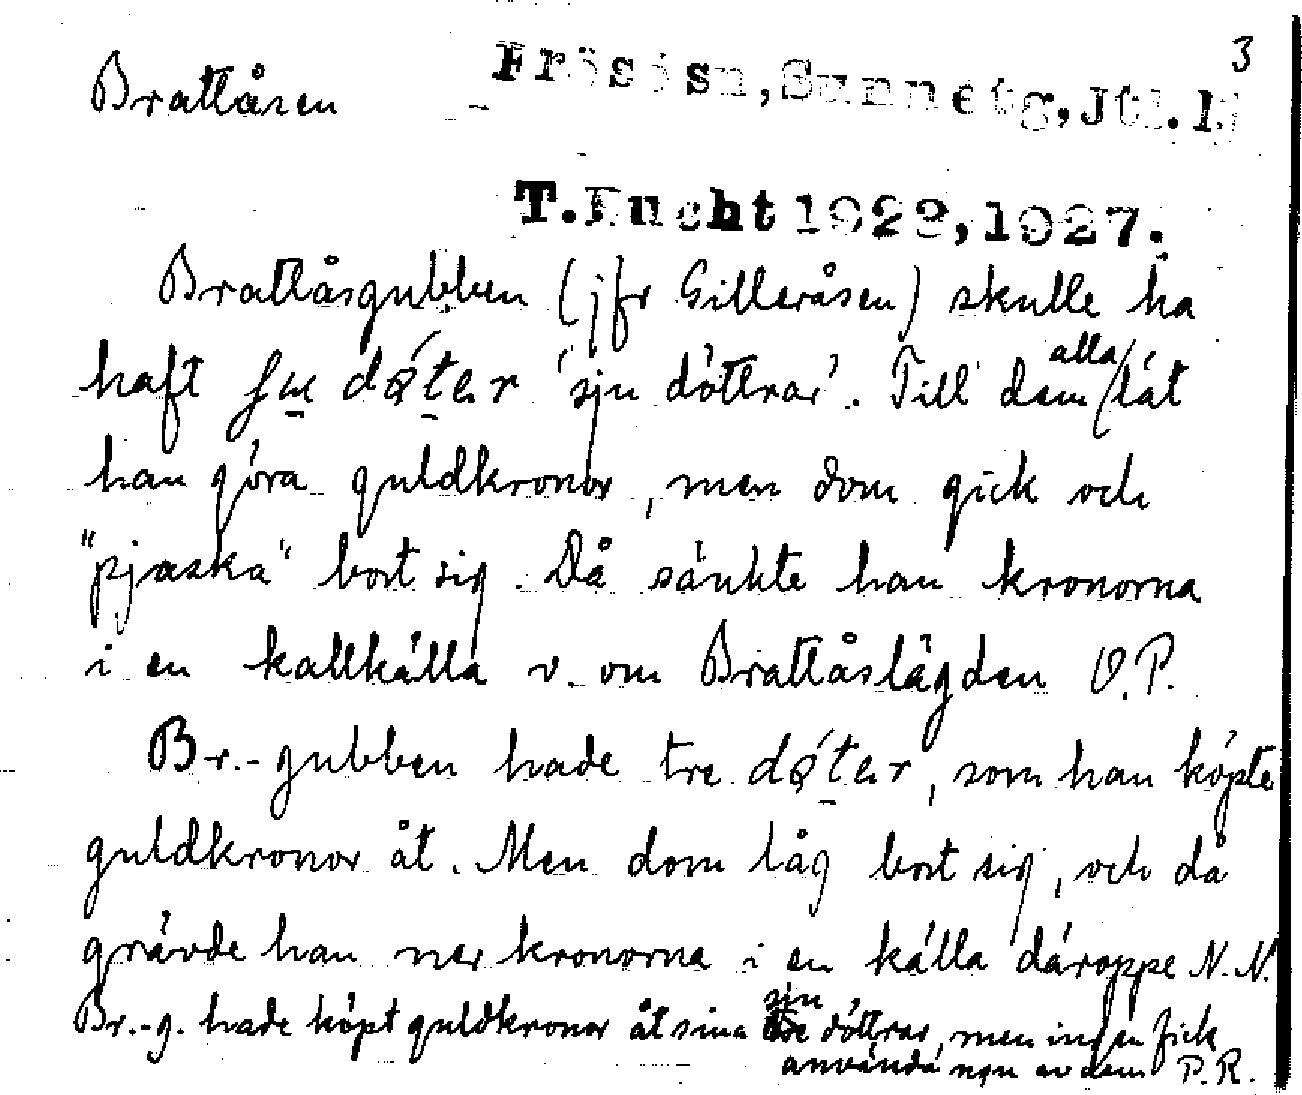 3
Brattåsen Frösösn, Sunnetg, Jtl. l.
T. Lucht 1922, 1927.
Brattåsgubben (jfr Gilleråsen) skulle ha
haft ʃɯ døter 'sju döttrar'. Till dem alla lät
han göra guldkronor, men dom gick och
"pjaska" bort sig. Då sänkte han kronorna
i en kallkälla v. om Brattåslägden O.P.
Br.-gubben hade tre døter, som han köpte
guldkronor åt. Men dom låg bort sig, och då
grävde han ner kronorna i en källa däroppe N.N.
Br.-g. hade köpt guldkronor åt sina sju döttrar, men ingen fick
använda ngn av dem P.R.